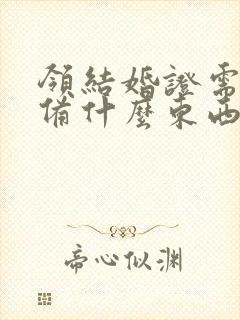 領結婚證需
備什麼東西
帝心似渊